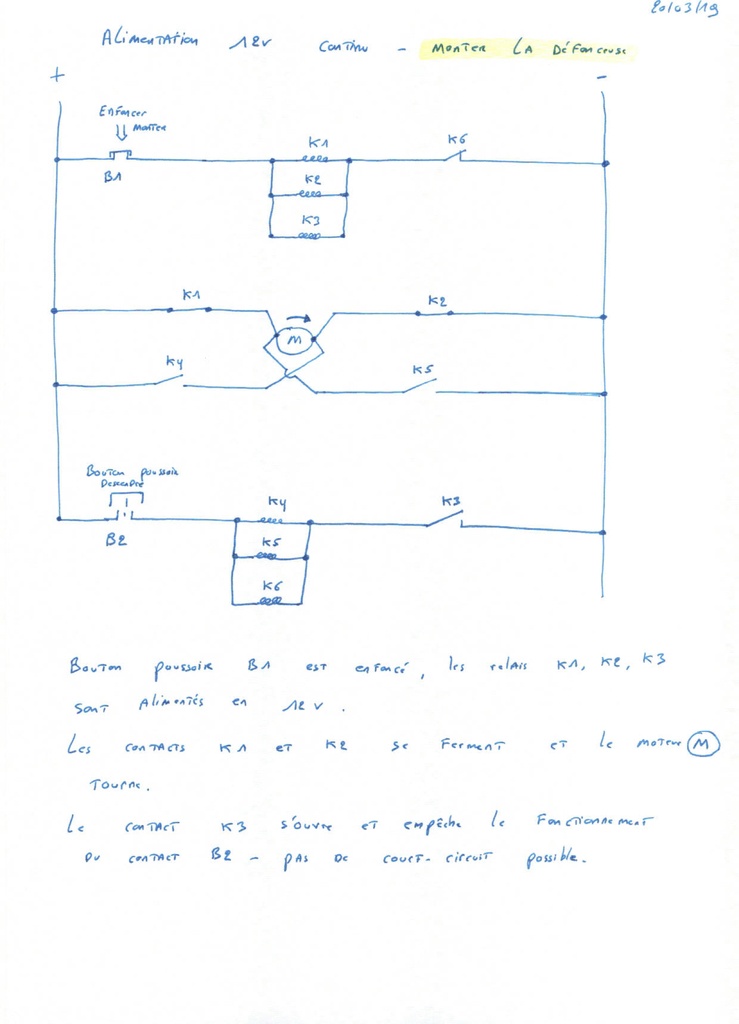 20/03/19
Alimentation 12V continu - Monter la défonceuse
+ -
Enfoncer
Monter
K1 K6
B1
K2
K3
K1 K2
M
K4 K5
Bouton poussoir
Descendre
K4 K3
B2
K5
K6
Bouton poussoir B1 est enfoncé, les relais K1, K2, K3
sont alimentés en 12V.
Les contacts K1 et K2 se ferment et le moteur M
tourne.
Le contact K3 s'ouvre et empêche le fonctionnement
du contact B2 - pas de court-circuit possible.